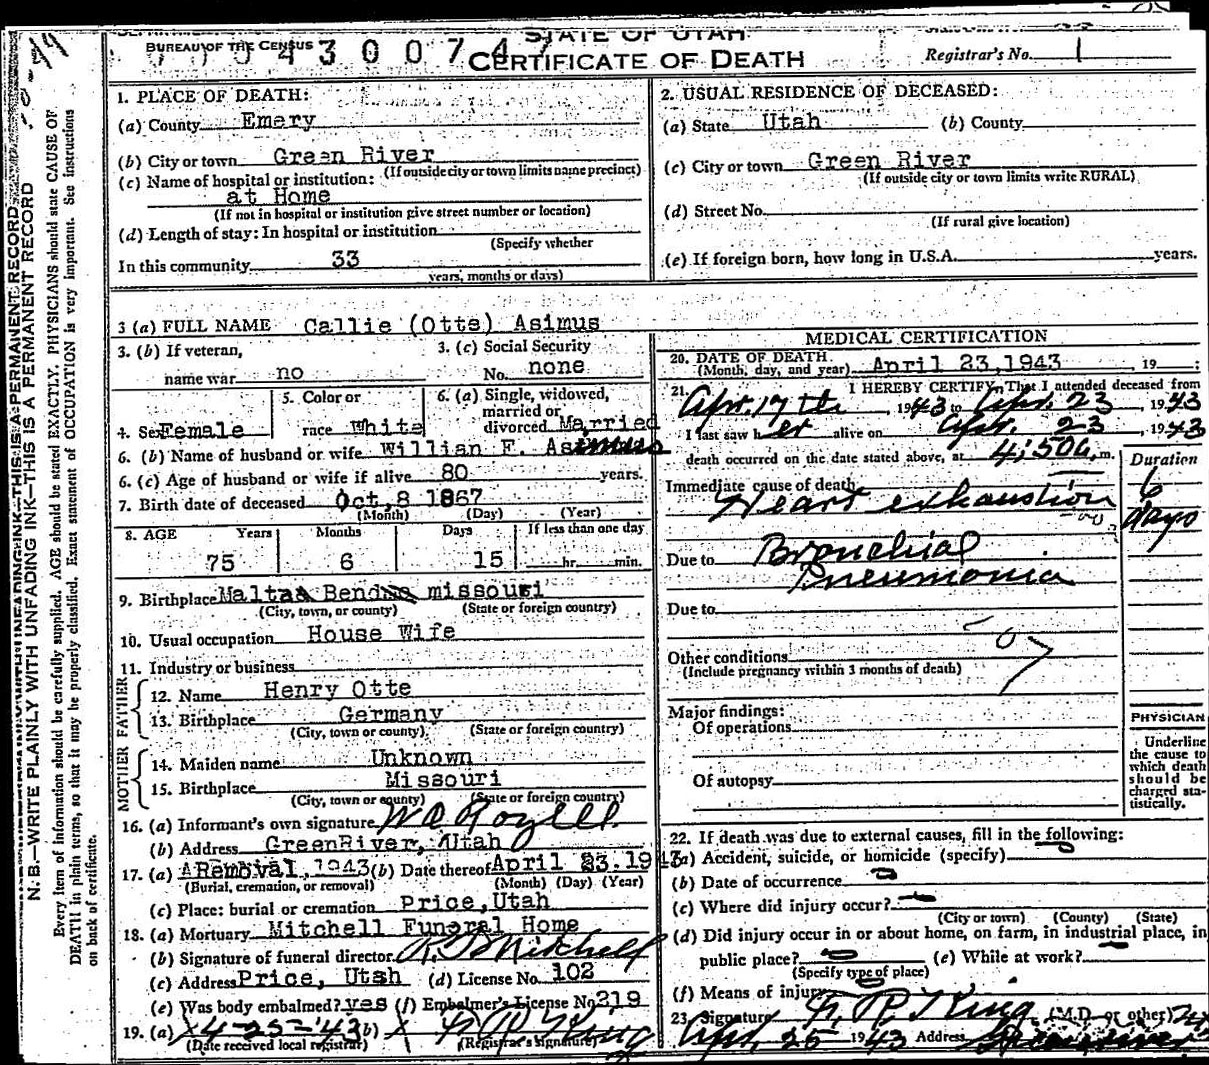 STATE OF UTAH
BUREAU OF THE CENSUS
CERTIFICATE OF DEATH
Registrar's No. 1
N. B.—WRITE PLAINLY WITH UNFADING INK—THIS IS A PERMANENT RECORD
Every item of information should be carefully supplied. AGE should be stated EXACTLY. PHYSICIANS should state CAUSE OF
DEATH in plain terms, so that it may be properly classified. Exact statement of OCCUPATION is very important. See instructions
on back of certificate.
1. PLACE OF DEATH:
(a) County Emery
(b) City or town Green River
(If outside city or town limits name precinct)
(c) Name of hospital or institution:
at Home
(If not in hospital or institution give street number or location)
(d) Length of stay: In hospital or institution
(Specify whether
In this community 33
years, months or days)
2. USUAL RESIDENCE OF DECEASED:
(a) State Utah (b) County
(c) City or town Green River
(If outside city or town limits write RURAL)
(d) Street No.
(If rural give location)
(e) If foreign born, how long in U.S.A. years.
3 (a) FULL NAME Callie (Otte) Asimus
3. (b) If veteran, 3. (c) Social Security
name war no No. none
5. Color or 6. (a) Single, widowed,
married or
4. Sex Female race White divorced Married
6. (b) Name of husband or wife Willian F. Asimus
6. (c) Age of husband or wife if alive 80 years.
7. Birth date of deceased Oct, 8 1867
(Month) (Day) (Year)
8. AGE Years Months Days If less than one day
75 6 15 hr. min.
9. Birthplace Malta Bend missouri
(City, town, or county) (State or foreign country)
10. Usual occupation House Wife
11. Industry or business
FATHER
12. Name Henry Otte
13. Birthplace Germany
(City, town or county) (State or foreign country)
MOTHER
14. Maiden name Unknown
15. Birthplace Missouri
(City, town or county) (State or foreign country)
16. (a) Informant's own signature
(b) Address GreenRiver, Utah
17. (a) Removal, 1943 (b) Date thereof April 23.1943
(Burial, cremation, or removal) (Month) (Day) (Year)
(c) Place: burial or cremation Price, Utah
18. (a) Mortuary Mitchell Funeral Home
(b) Signature of funeral director Mitchell
(c) Address Price, Utah (d) License No. 102
(e) Was body embalmed? yes (f) Embalmer's License No 219
19. (a) 4-25-'43 (b) King
(Date received local registrar) (Registrar's signature)
MEDICAL CERTIFICATION
20. DATE OF DEATH
(Month, day, and year) April 23, 1943, 19 :
21. I HEREBY CERTIFY, That I attended deceased from
Apr. 17th, 1943 to Apr. 23, 1943
I last saw her alive on Apr. 23, 1943
death occurred on the date stated above, at 4:50 a. m.
Duration
Immediate cause of death
Heart exhaustion 6 days
Due to Bronchial
Pneumonia
Due to
Other conditions
(Include pregnancy within 3 months of death)
Major findings:
Of operations
Of autopsy
PHYSICIAN
Underline
the cause to
which death
should be
charged sta-
tistically.
22. If death was due to external causes, fill in the following:
(a) Accident, suicide, or homicide (specify)
(b) Date of occurrence
(c) Where did injury occur?
(City or town) (County) (State)
(d) Did injury occur in or about home, on farm, in industrial place, in
public place? (e) While at work?
(Specify type of place)
(f) Means of injury
23. Signature King (M.D. or other)
Apr. 25 1943 Address